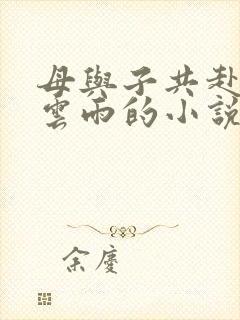 母與子共赴
雲雨的小說
余慶